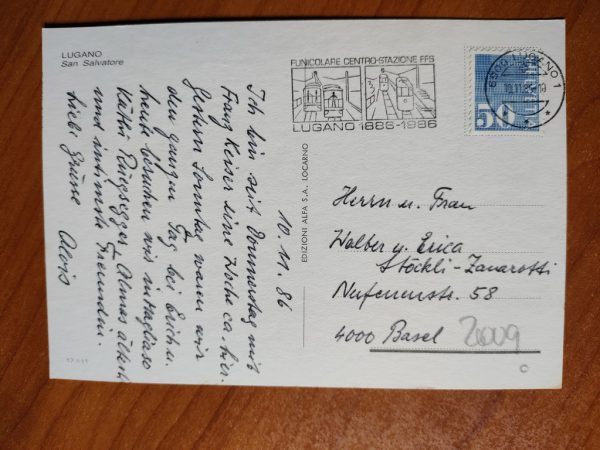 LUGANO
San Salvatore
10.11.86
Ich bin seit Donnerstag mit
Franz Keiser eine Woche ca. hier.
Gestern Sonntag waren wir
den ganzen Tag bei Erich u.
heute besuchen wir in
Käthi Rüegsegger, Almas älteste
und intimste Freundin.
Liebi Grüsse Alois
EDIZIONI ALFA S.A. LOCARNO
FUNICOLARE CENTRO-STAZIONE FFS
LUGANO 1886-1986
6900 LUGANO 1
50
Herrn u. Frau
Walter u. Erica
Stöckli-Zanarotti
Nufenenstr. 58
4000 Basel
2009